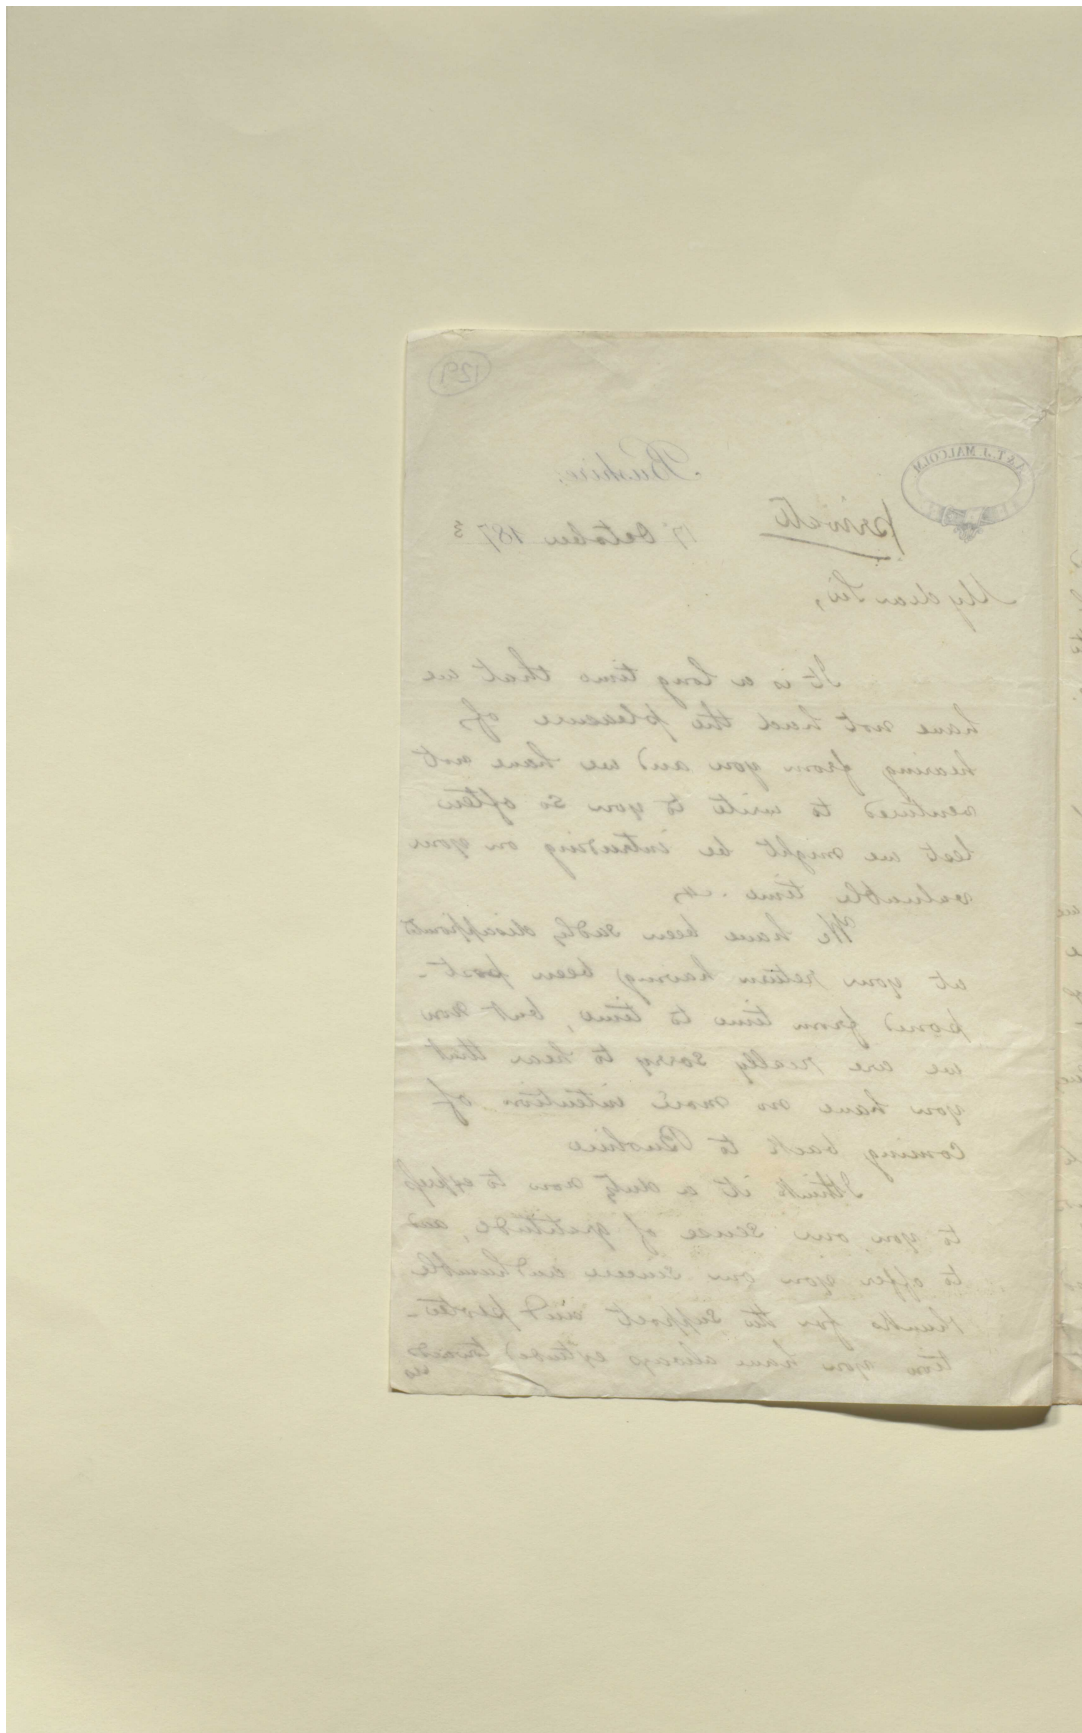 129
A & T. J. MALCOLM
Bushire.
private
17 October 1873
My dear Sir,
It is a long time that we
have not had the pleasure of
hearing from you and we have not
ventured to write to you so often
lest we might be intruding on your
valuable time.
We have been sadly disappointed
at your return having been post-
poned from time to time, but now
we are really sorry to hear that
you have no more intention of
coming back to Bushire
I think it a duty now to express
to you our sense of gratitude, and
to offer you our sincere and humble
thanks for the support and protec-
tion you have always extended towards
us